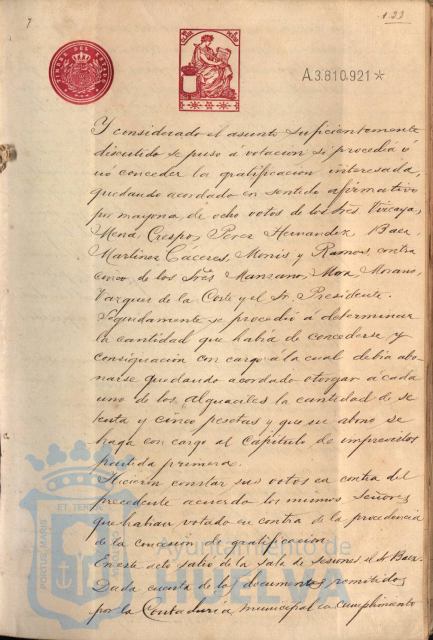 7
122
TIMBRE DEL ESTADO
A.3.810.921*
Y considerado el asunto suficientemente
discutido se puso á votacion si procedia ó
nó conceder la gratificacion interesada,
quedando acordado en sentido afirmativo
por mayoria de ocho votos de los Sres Vizcaya,
Mena, Crespo, Perez Hernandez, Baez,
Martinez Cáceres, Monis y Ramos contra
cinco de los Sres Manzano, Mora, Morano,
Vazquez de la Corte y el Sr. Presidente.
Seguidamente se procedió á determinar
la cantidad que habia de concederse y
consignacion con cargo á la cual debia abo-
narse quedando acordado otorgar á cada
uno de los alguaciles la cantidad de se
tenta y cinco pesetas y que su abono se
haga con cargo al Capitulo de imprevistos
partida primera.
Hicieron constar sus votos en contra del
precedente acuerdo los mismos Señores
que habian votado en contra de la procedencia
de la concesion de gratificacion.
En este acto salió de la Sala de sesiones el Sr. Baez.
Dada cuenta de los documentos remitidos
por la Contaduria municipal en cumplimiento
PORTUS MARIS
ET TERRAE
Ayuntamiento de
HUELVA